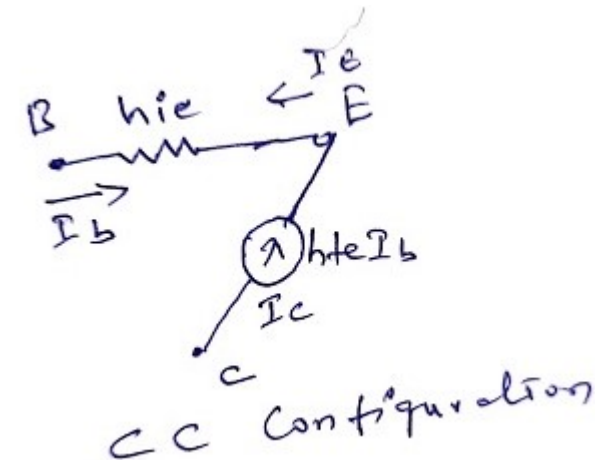 Ie
B hie E
Ib
hfeIb
Ic
C
CC Configuration